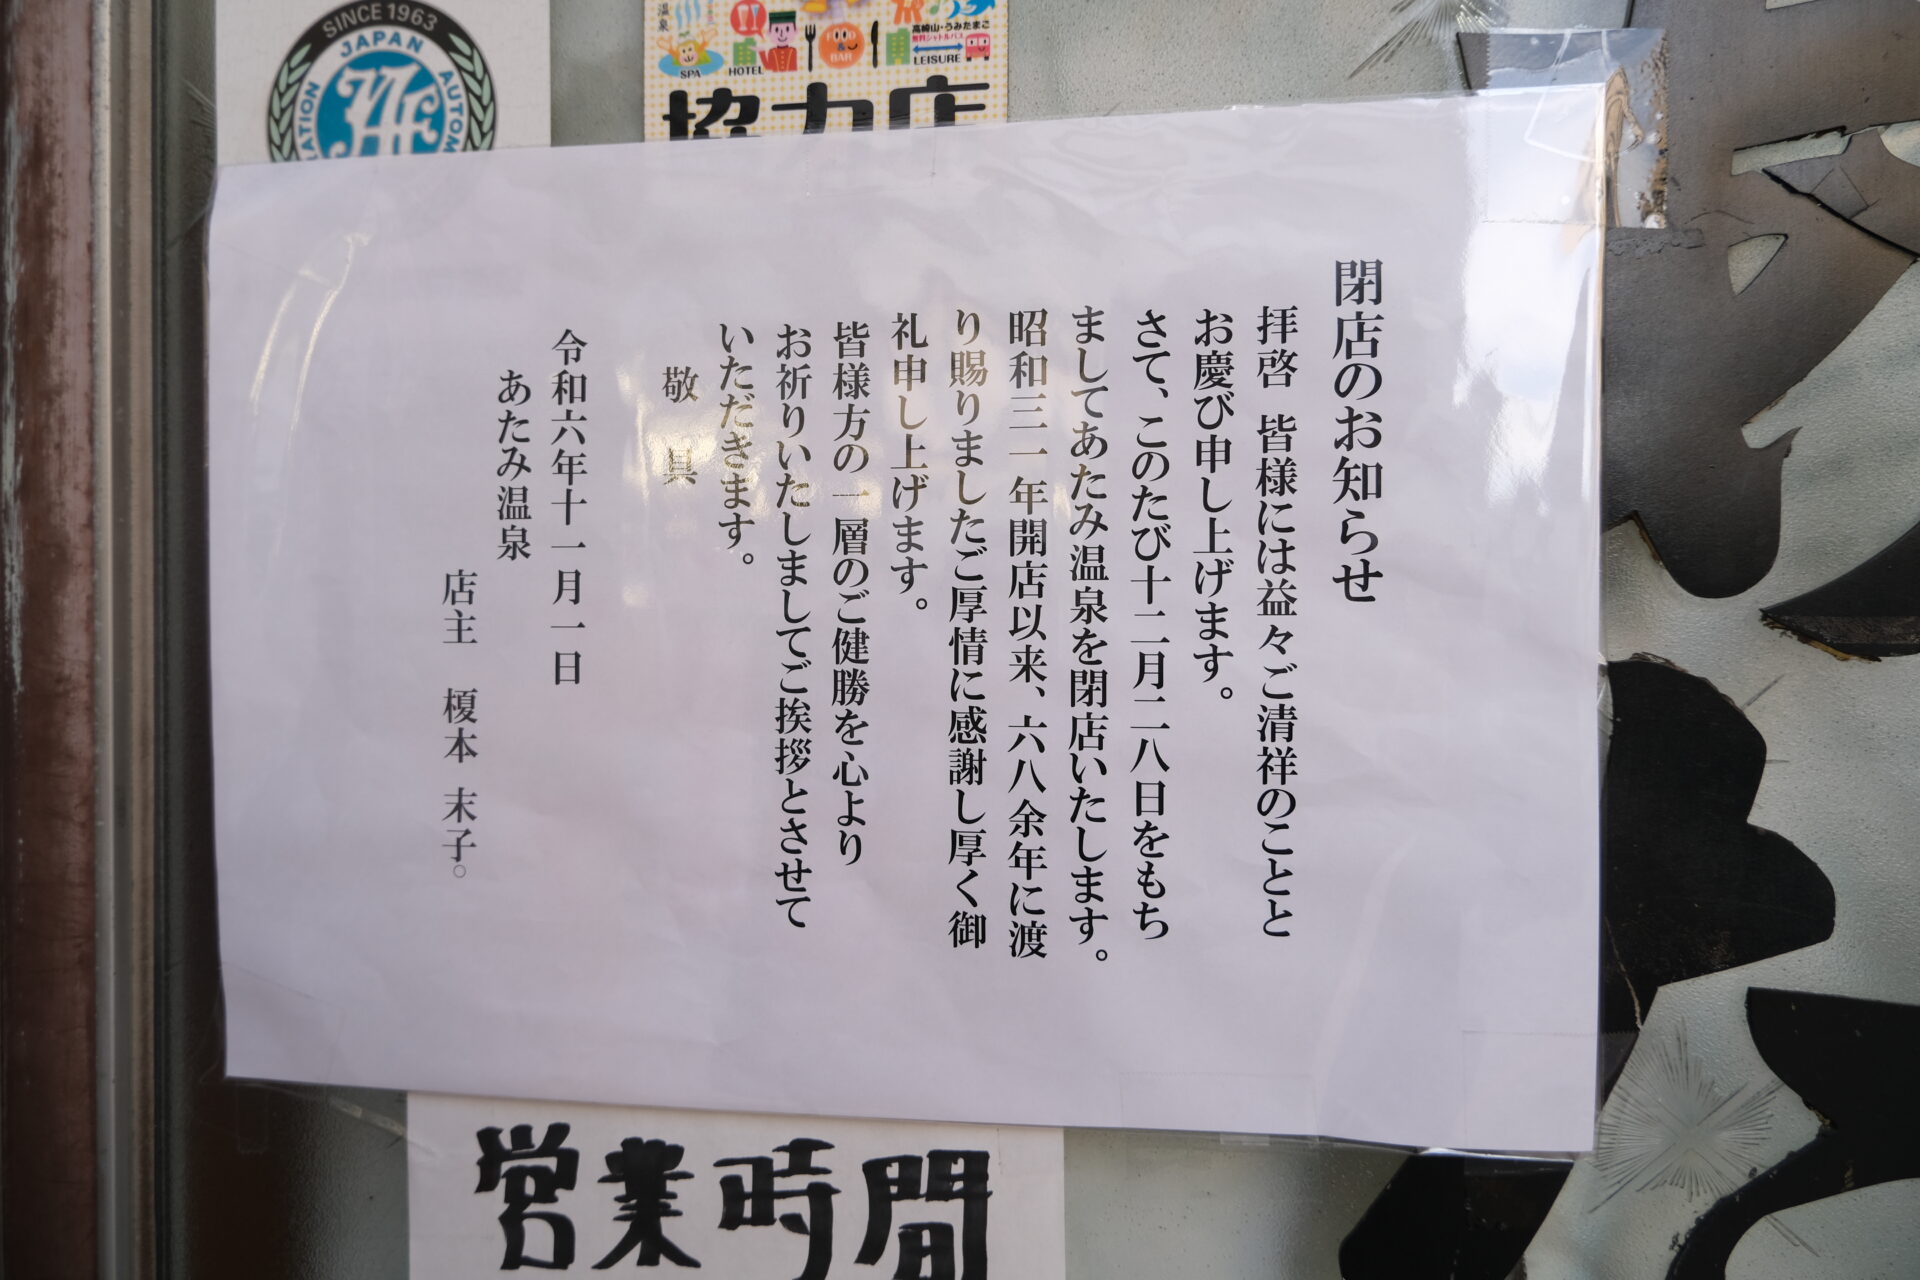 SINCE 1963
JAPAN
AUTOM
温泉
SPA
HOTEL
BAR
高崎山・うみたまご
無料シャトルバス
LEISURE
協力店
閉店のお知らせ
拝啓 皆様には益々ご清祥のことと
お慶び申し上げます。
さて、このたび十二月二八日をもち
ましてあたみ温泉を閉店いたします。
昭和三一年開店以来、六八余年に渡
り賜りましたご厚情に感謝し厚く御
礼申し上げます。
皆様方の一層のご健勝を心より
お祈りいたしましてご挨拶とさせて
いただきます。
敬 具
令和六年十一月一日
あたみ温泉
店主 榎本 末子。
営業時間